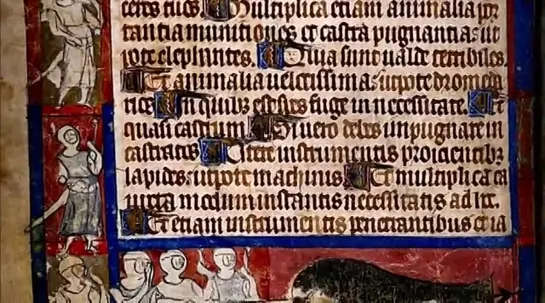 ceres tuos. Multiplica etiam animalia por
tantia munitiones et castra pugnantia: ut
pote elephantes. Quia sunt valde terribiles.
Et animalia velocissima: utpote dromeda
rice. In quibz eses fuge in necessitate. Et
quasi castrum. Si vero debes impugnare in
castratos. Utere instrumentis proicientibz
lapides: utpote machinis. Et multiplica ea
iuxta modum instantis necessitatis ad hec.
Et etiam instrumentis penetrantibus et ia